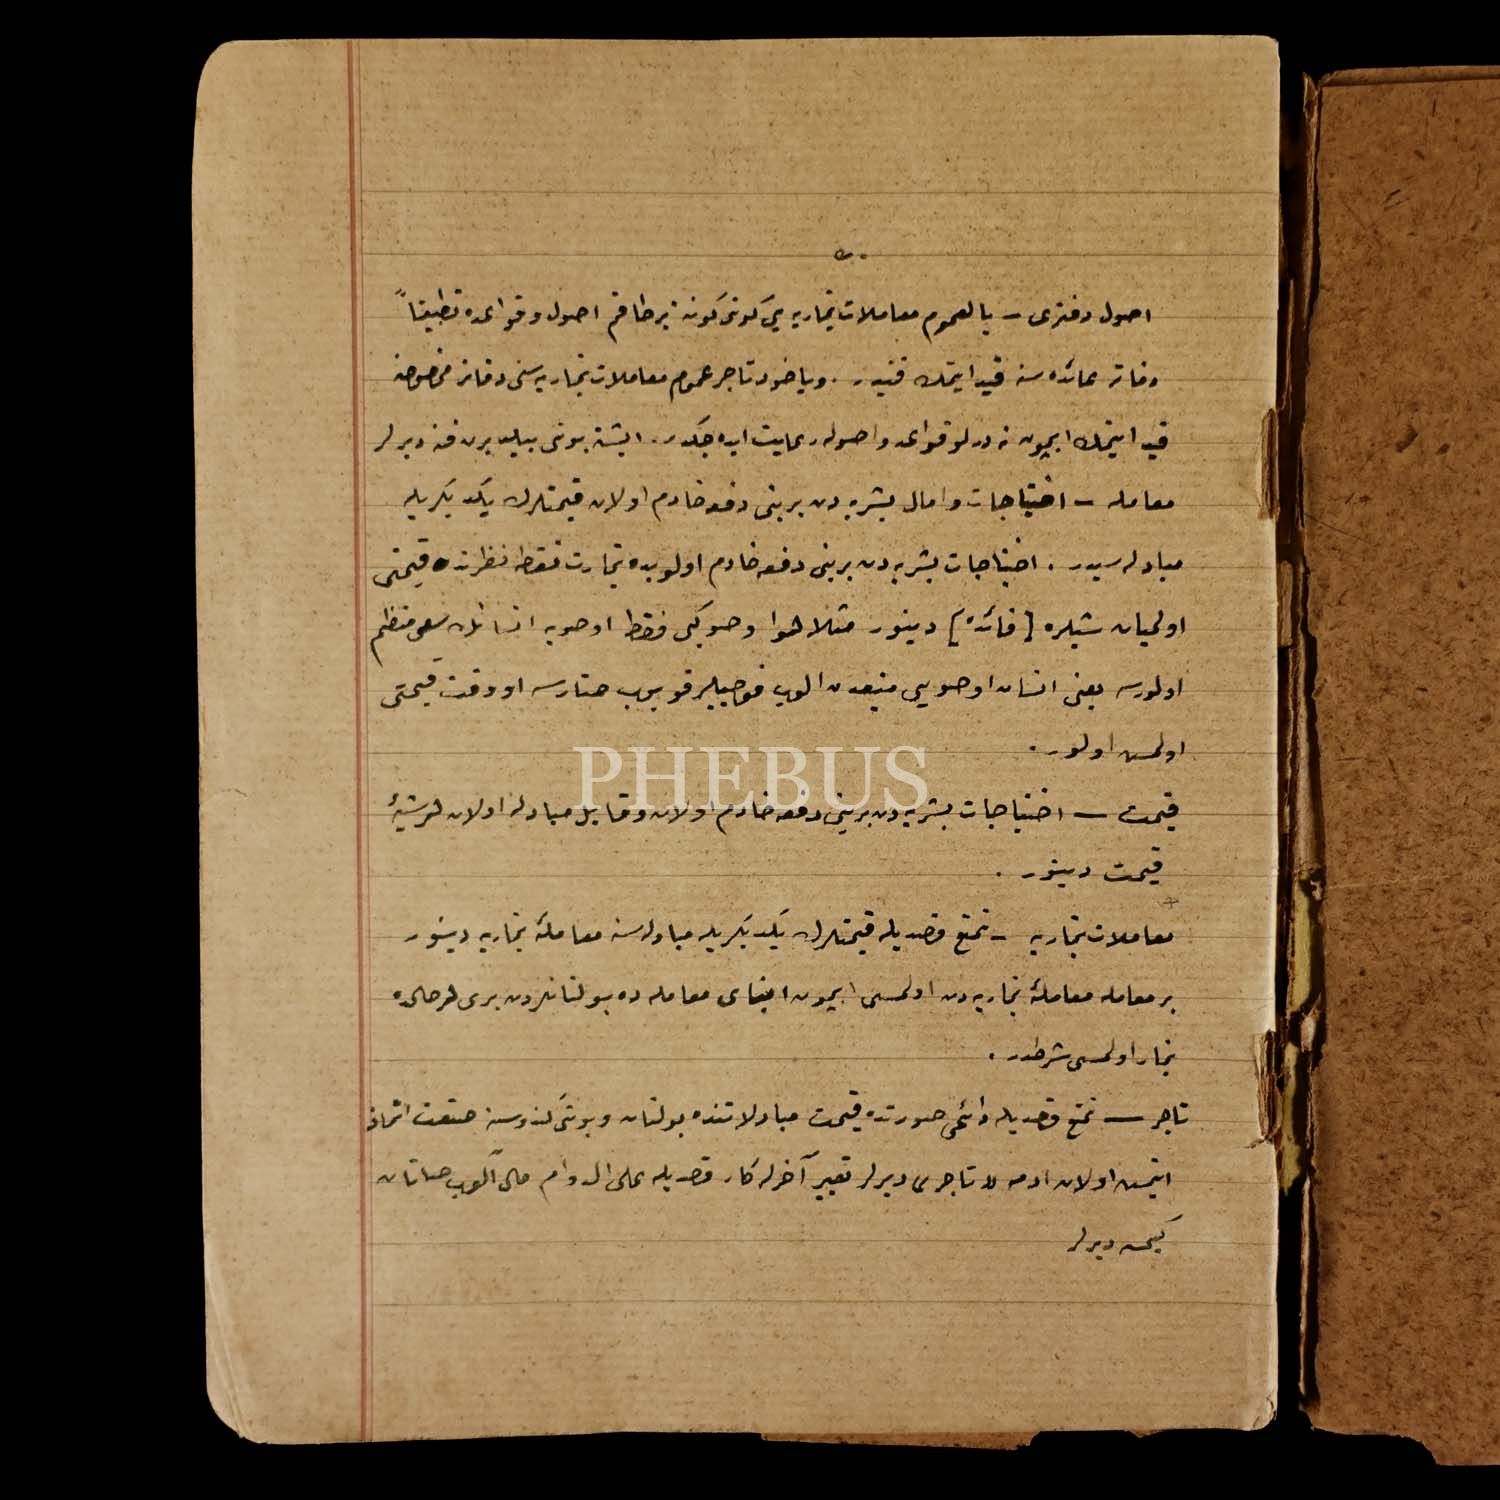 اصول دفتری – بالعموم معاملات تجاریه یی کونی کونه بر طاقم اصول و قواعده تطبیقاً
دفاتر عائده سنه قید ایتمك فنیدر. ویاخود تاجر عموم معاملات تجاریه سنی دفاتر مخصوصه
قید ایتمك ایچون نه درلو قواعد و اصوله رعایت ایده جکدر. ایشته بونی بیلدیرن فنه دیرلر
معامله – احتیاجات و امال بشریه دن برینی دفعه خادم اولان قیمتلرك یکدیکریله
مبادله سیدر. احتیاجات بشریه دن برینی دفعه خادم اولوبده تجارت نقطه نظرنده قیمتی
اولمیان شیلره [فائده] دینور مثلا هوا و صو کبی فقط او صویه انسانلرك سعی منظم
اولورسه یعنی انسان او صویی منبعدن الوب قوب صتارسه او وقت قیمتی
اولمش اولور.
PHEBUS
قیمت – احتیاجات بشریه دن برینی دفعه خادم اولان و قابل مبادله اولان هر شیئه
قیمت دینور.
معاملات تجاریه – تمتع قصدیله قیمتلرك یکدیکریله مبادله سنه معاملهٔ تجاریه دینور
بر معامله معاملهٔ تجاریه دن اولمسی ایچون ایفای معامله ده بولنانلردن بری هر حالده
تجار اولمسی شرطدر.
تاجر – تمتع قصدیله دائمی صورتده قیمت مبادلاتنده بولنان و بونی کندوسنه صنعت اتخاذ
ایتمش اولان ادمه « تاجر » دیرلر تعبیر آخرله کار قصدیله علی الدوام مال آلوب صاتان
کیمسه دیرلر